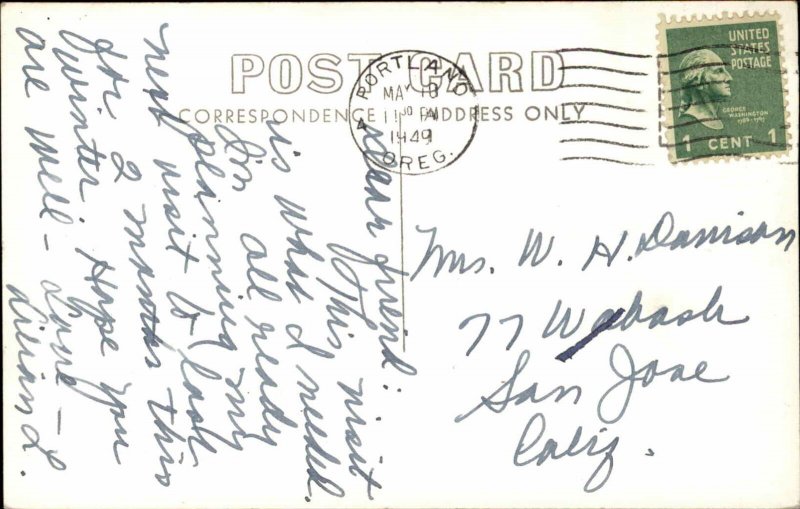 POST CARD
CORRESPONDENCE ADDRESS ONLY
PORTLAND
MAY 10
1949
OREG.
4
UNITED
STATES
POSTAGE
GEORGE
WASHINGTON
1789-1797
1 CENT 1
Dear friend:
This visit
is what I needed.
I'm all ready
planning my
next visit to last
for 2 months this
winter. Hope you
are well - Love -
Lillian L.
Mrs. W. H. Danison
77 Wabash
San Jose
Calif.